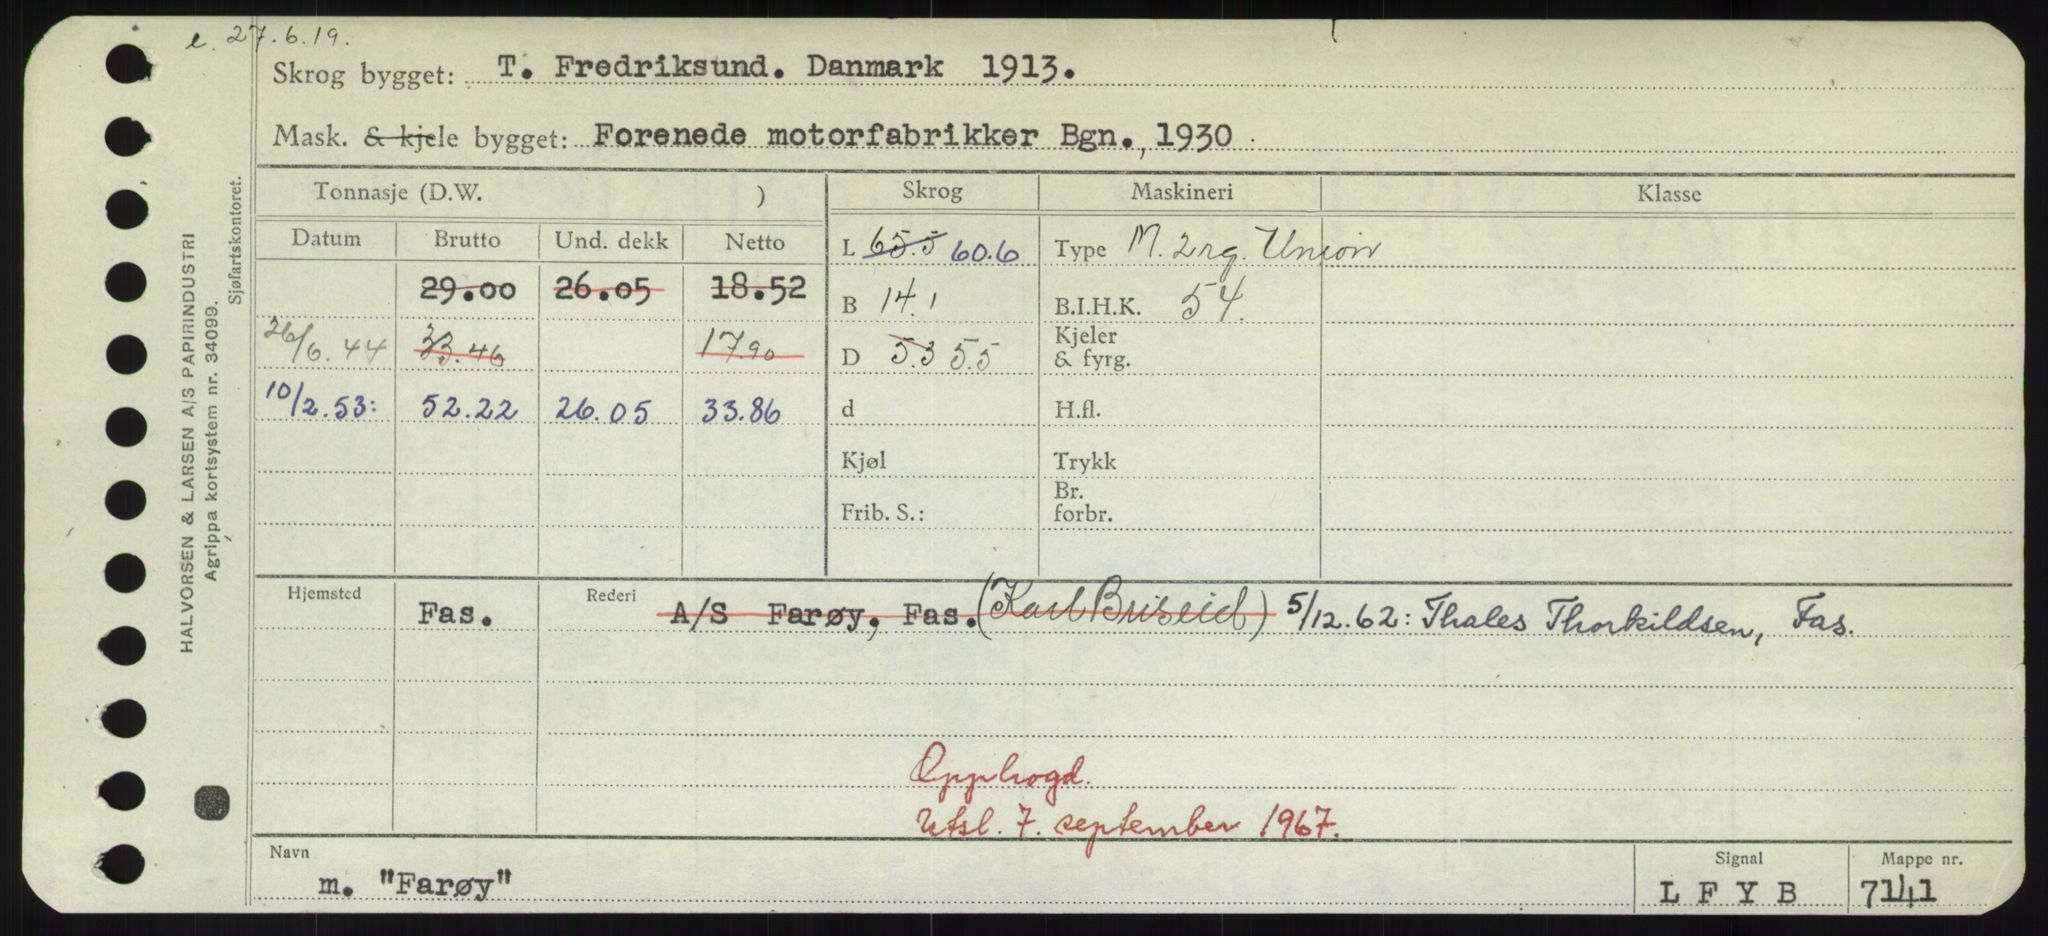 e. 27.6.19.
Skrog bygget: T. Fredriksund. Danmark 1913.
Mask. & kjele bygget: Forenede motorfabrikker Bgn., 1930
Tonnasje (D.W. ) Skrog Maskineri Klasse
Datum Brutto Und. dekk Netto
L 65.5 60.6 Type M. 2 rg. Union
29.00 26.05 18.52
B 14.1 B.I.H.K. 54.
26/6.44 33.46 17.90
D 5.3 5.5 Kjeler
& fyrg.
10/2.53: 52.22 26.05 33.86
d H.fl.
Kjøl Trykk
Frib. S.: Br.
forbr.
Hjemsted Fas. Rederi A/S Farøy, Fas. (Karl Briseid) 5/12.62: Thales Thorkildsen, Fas.
Opphogd.
Utsl. 7. september 1967.
Navn Signal Mappe nr.
m. "Farøy" L F Y B 7141
HALVORSEN & LARSEN A/S PAPIRINDUSTRI
Agrippa kortsystem nr. 34099.
Sjøfartskontoret.